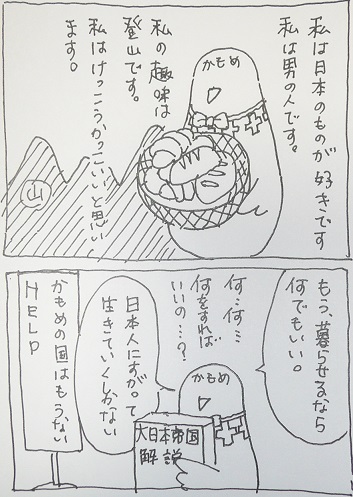 私は日本のものが好きです
私は男の人です。
かもめ
私の趣味は
登山です。
私はけっこうかっこいいと思い
ます。
山
もう、暮らせるなら
何でもいい。
何…何…
何をすれば
いいの…?
かもめ
日本人にすがって
生きていくしかない
大日本帝国
解説
かもめの国はもうない
HELP